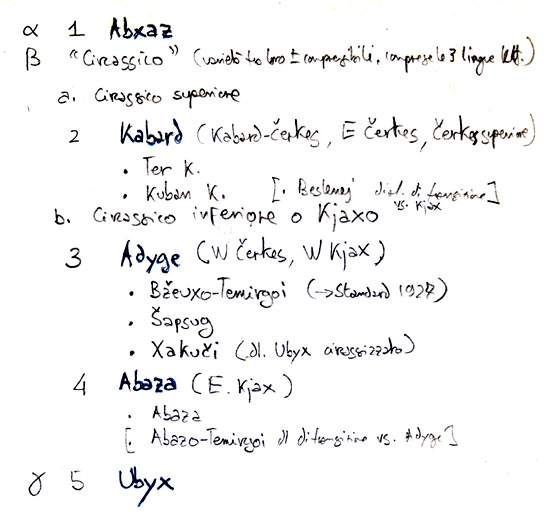 α 1 Abxaz
β "Circassico" (varietà tra loro ± comprensibili, comprese le 3 lingue lett.)
a. Circassico superiore
2 Kabard (Kabard-čerkes, E čerkes, čerkes superiore)
• Ter K.
• Kuban K. [• Beslenej dial. di transizione vs. Kjax]
b. Circassico inferiore o Kjaxo
3 Adyge (W čerkes, W Kjax)
• Bžeuxo-Temirgoi (→ Standard 1927)
• Šapsug
• Xakuči (dl. Ubyx circassizzato)
4 Abaza (E. Kjax)
• Abaza
[• Abazo-Temirgoi dl di transizione vs. Adyge]
γ 5 Ubyx